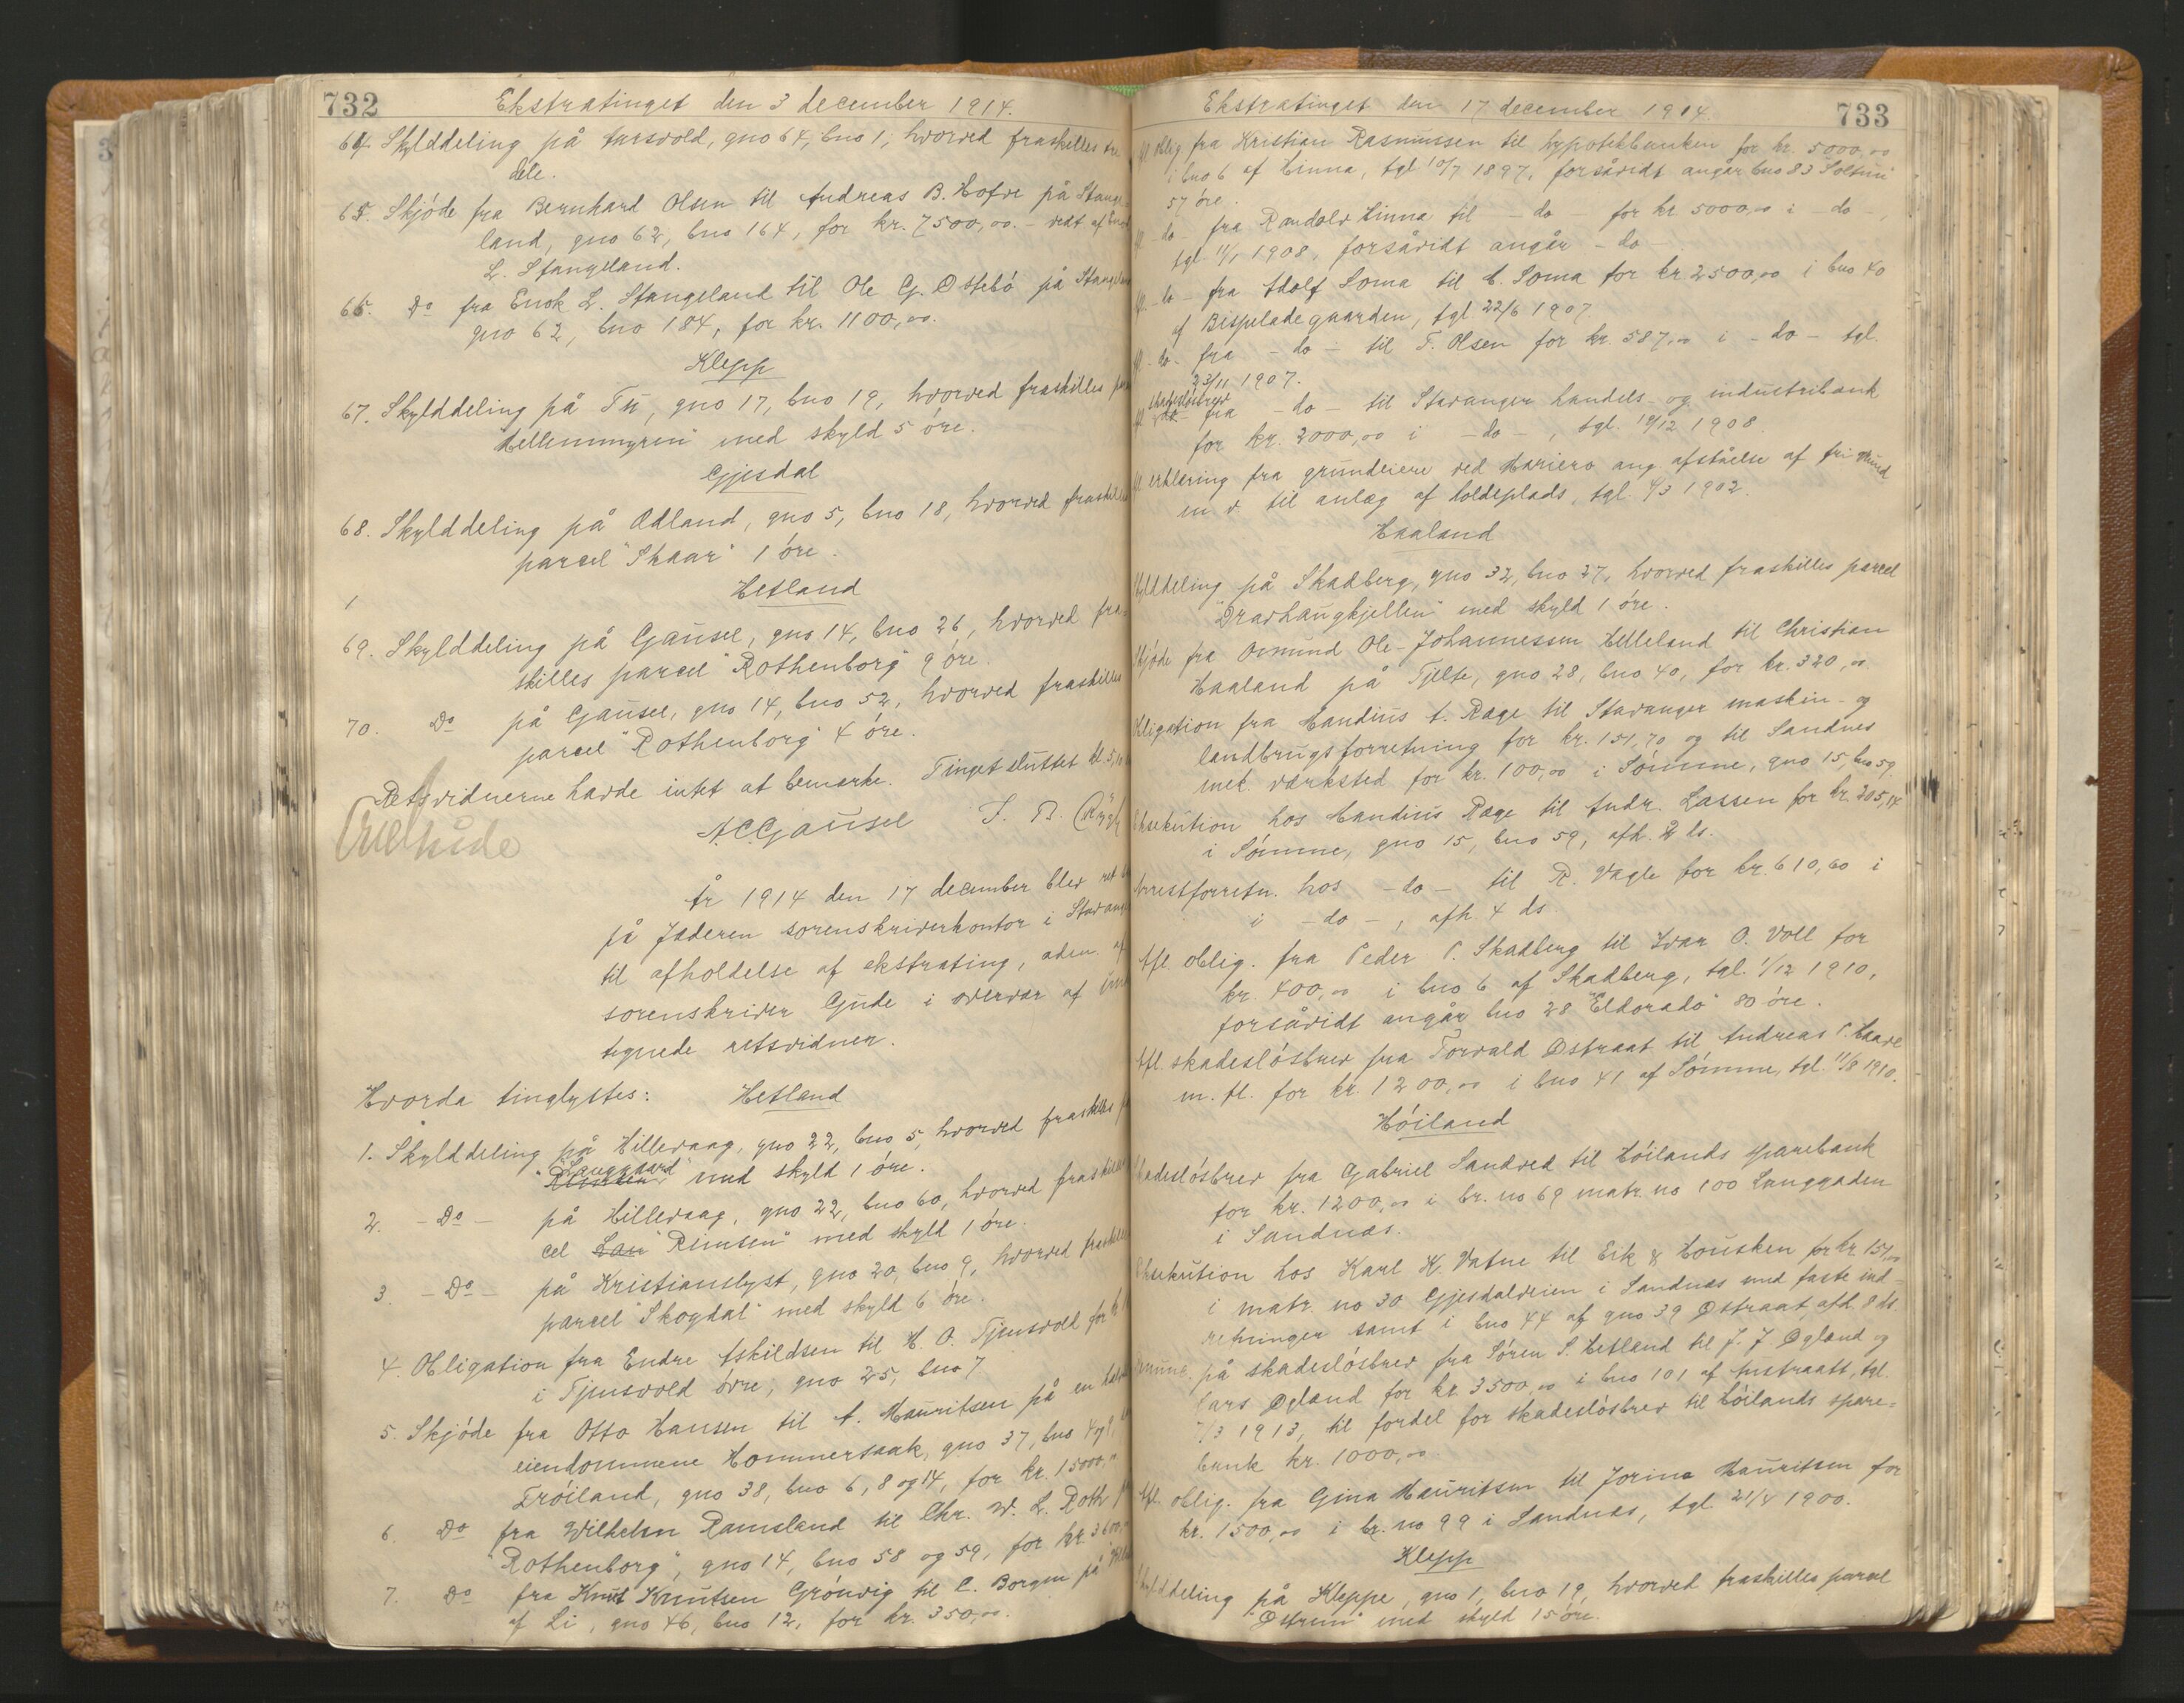 732
Ekstratinget den 3 december 1914.
64. Skylddeling på Aarsvold, gno 64, bno 1, hvorved fraskilles
dele.
65. Skjøde fra Bernhard Olsen til Andreas B. Hofve på Stange-
land, gno 62, bno 164, for kr. 7500,00. – vedt. af
L. Stangeland.
66. Do fra Enok L. Stangeland til Ole G. Østebø på
gno 62, bno 184, for kr. 1100,00.
Klepp
67. Skylddeling på Tu, gno 17, bno 19, hvorved fraskilles
"Mellemmyren" med skyld 5 øre.
Gjesdal
68. Skylddeling på Ødland, gno 5, bno 18, hvorved
parcel "Skaar" 1 øre.
Hetland
69. Skylddeling på Gausel, gno 14, bno 26, hvorved fra-
skilles parcel "Rothenborg" 9 øre.
70. Do på Gausel, gno 14, bno 52, hvorved fraskilles
parcel "Rothenborg" 4 øre.
Retsvidnerne havde intet at bemærke. Tinget sluttet kl. 5,
A. C. Gausel S. B.
År 1914 den 17 december blev ret
på Jæderen sorenskriverkontor i
til afholdelse af ekstrating, adm. af
sorenskriver Gude i overvær af
tegnede retsvidner.
Hvorda tinglystes: Hetland
1. Skylddeling på Hillevaag, gno 22, bno 5, hvorved fraskilles
"Langgaard" med skyld 1 øre.
2. – Do – på Hillevaag, gno 22, bno 60, hvorved
cel "Rimsen" med skyld 1 øre.
3. – Do – på Kristianslyst, gno 20, bno 9, hvorved
parcel "Skogdal" med skyld 6 øre.
4. Obligation fra Endre Askildsen til H. O. Tjensvold for
i Tjensvold øvre, gno 25, bno 7
5. Skjøde fra Otto Hansen til A. Mauritsen på en
eiendommene Hommersaak, gno 37, bno 4 og
Frøiland, gno 38, bno 6, 8 og 14, for kr. 15000,00
6. Do fra Wilhelm Ramsland til Chr. W. L. Roth
"Rothenborg", gno 14, bno 58 og 59, for kr. 3600,
7. Do fra Knut Knutsen Grønvig til C. Borgen på
af Li, gno 46, bno 12, for kr. 350,00.
Ekstratinget den 17 december 1914.
733
oblig fra Kristian Rasmussen til hypotekbanken for kr. 5000,00
i bno 6 af Hinna, tgl. 10/7 1897, forsåvidt angår bno 83 "Soltun"
57 øre.
– do – fra Randolv Hinna til – do – for kr 5000,00 i – do –,
tgl. 11/1 1908, forsåvidt angår – do –
– do – fra Adolf Soma til C. Soma for kr 2500,00 i bno 40
af Bispeladegaarden, tgl 22/6 1907.
– do – fra – do – til T. Olsen for kr. 587,00 i – do – tgl.
23/11 1907.
skadesløsbrev fra – do – til Stavanger handels- og industribank
for kr. 2000,00 i – do –, tgl. 19/12 1908.
erklæring fra grundeiere ved Mariero ang. afståelse af fri grund
m. v. til anlæg af holdeplads, tgl. 4/3 1902.
Haaland
Skylddeling på Skadberg, gno 32, bno 27, hvorved fraskilles parcel
"Dravhaugkjellen" med skyld 1 øre.
Skjøde fra Osmund Ole-Johannessen Helleland til Christian
Haaland på Tjelte, gno 28, bno 40, for kr. 320,00.
Obligation fra Mandius A. Rage til Stavanger maskin- og
landbrugsforretning for kr. 151,70 og til Sandnes
mek. værksted for kr. 100,00 i Sømme, gno 15, bno 59.
Eksekution hos Mandius Rage til Andr. Lassen for kr. 205,14
i Sømme, gno 15, bno 59, afh. 2 ds.
Arrestforretn. hos – do – til R. Vagle for kr. 610,60 i
i – do –, afh. 4 ds.
Afl. oblig. fra Peder P. Skadberg til Ivar O. Voll for
kr. 400,00 i bno 6 af Skadberg, tgl. 1/12 1910,
forsåvidt angår bno 28 "Eldorado" 80 øre.
Afl. skadesløsbrev fra Torvald Østraat til Andreas P. Haave
m. fl. for kr. 1200,00 i bno 41 af Sømme, tgl. 11/8 1910.
Høiland
Skadesløsbrev fra Gabriel Sandved til Høilands sparebank
for kr. 1200,00 i br. no 69 matr. no 100 Langgaden
i Sandnæs.
Eksekution hos Karl K. Vatne til Eik & Housken for kr. 151,00
i matr. no 30 Gjesdalveien i Sandnæs med faste ind-
retninger samt i bno 44 af gno 39 Østraat, afh. 8 ds.
på skadesløsbrev fra Søren S. Hetland til J. J Øgland og
Lars Øgland for kr. 3500,00 i bno 101 af Austraatt, tgl.
7/3 1913, til fordel for skadesløsbrev til Høilands spare-
bank kr. 1000,00.
Afl. oblig. fra Gina Mauritsen til Jorine Mauritsen for
kr. 1500,00 i br. no 99 i Sandnæs, tgl 21/8 1900.
Klepp
Skylddeling på Kleppe, gno 1, bno 19, hvorved fraskilles parcel
"Østrem" med skyld 15 øre.